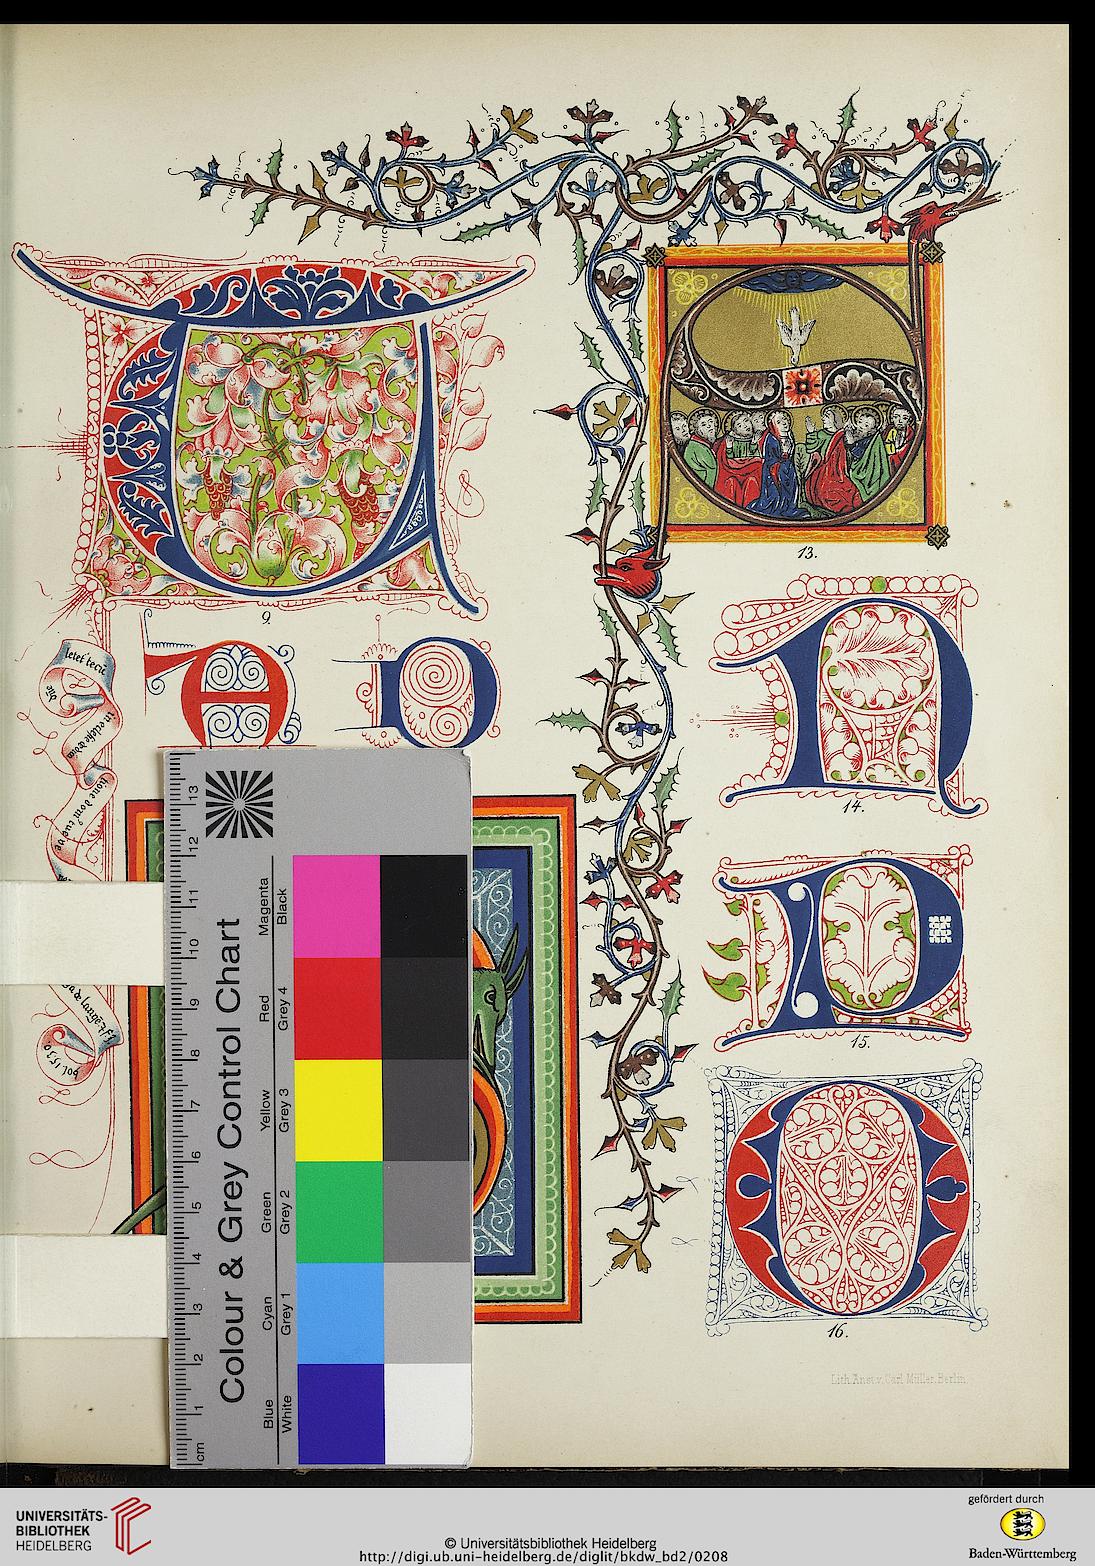 9.
13.
14.
15.
16.
letet tecū
Lith. Anst. v. Carl Müller, Berlin.
Colour & Grey Control Chart
Magenta
Red
Yellow
Green
Cyan
Blue
Black
Grey 4
Grey 3
Grey 2
Grey 1
White
13
12
11
10
9
8
7
6
5
4
3
2
1
cm
UNIVERSITÄTS-
BIBLIOTHEK
HEIDELBERG
© Universitätsbibliothek Heidelberg
http://digi.ub.uni-heidelberg.de/diglit/bkdw_bd2/0208
gefördert durch
Baden-Württemberg